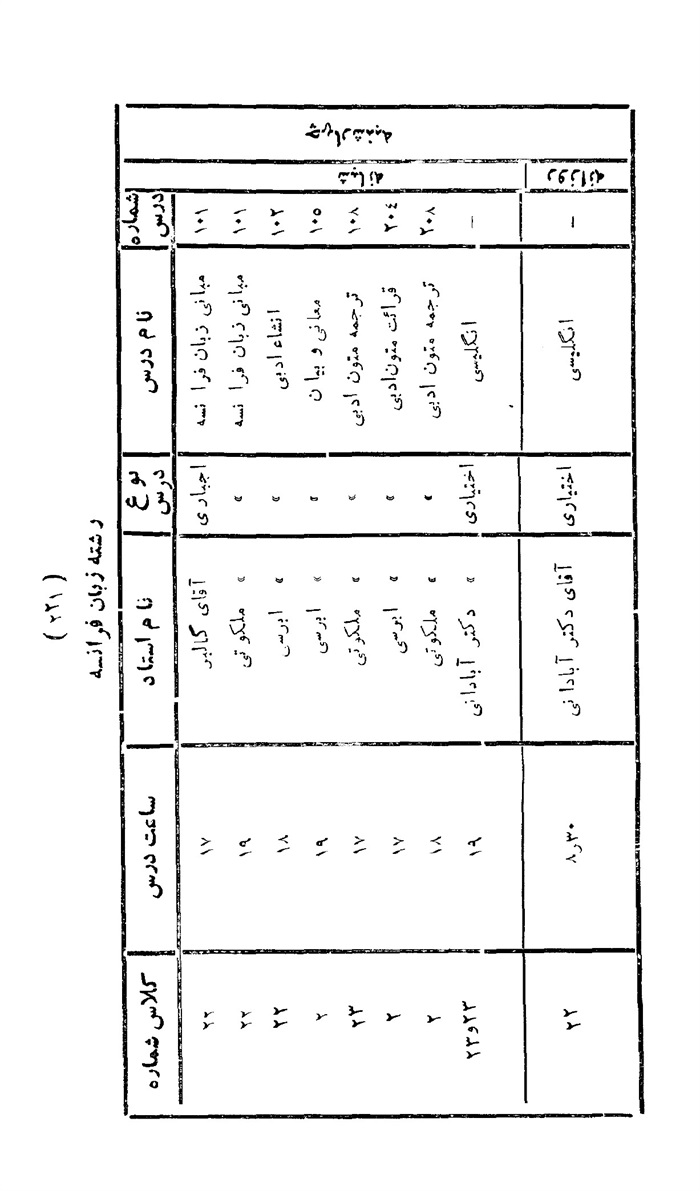 ( ۲۲۱ )
رشته زبان فرانسه
شماره درس نام درس نوع درس نام استاد ساعت درس کلاس شماره
چهارشنبه
شبانه
۱۰۱ مبانی زبان فرانسه اجباری آقای گالبر ۱۷ ۲۲
۱۰۱ مبانی زبان فرانسه » » ملکوتی ۱۹ ۲۲
۱۰۲ انشاء ادبی » » ابرسی ۱۸ ۲۲
۱۰۵ معانی و بیان » » ابرسی ۱۹ ۲
۱۰۸ ترجمه متون ادبی » » ملکوتی ۱۷ ۲۳
۲۰۴ قرائت متون ادبی » » ابرسی ۱۷ ۲
۲۰۸ ترجمه متون ادبی » » ملکوتی ۱۸ ۲
— انگلیسی اختیاری » دکتر آبادانی ۱۹ ۲۳و۲۳
روزانه
— انگلیسی اختیاری آقای دکتر آبادانی ۸٫۳۰ ۲۲